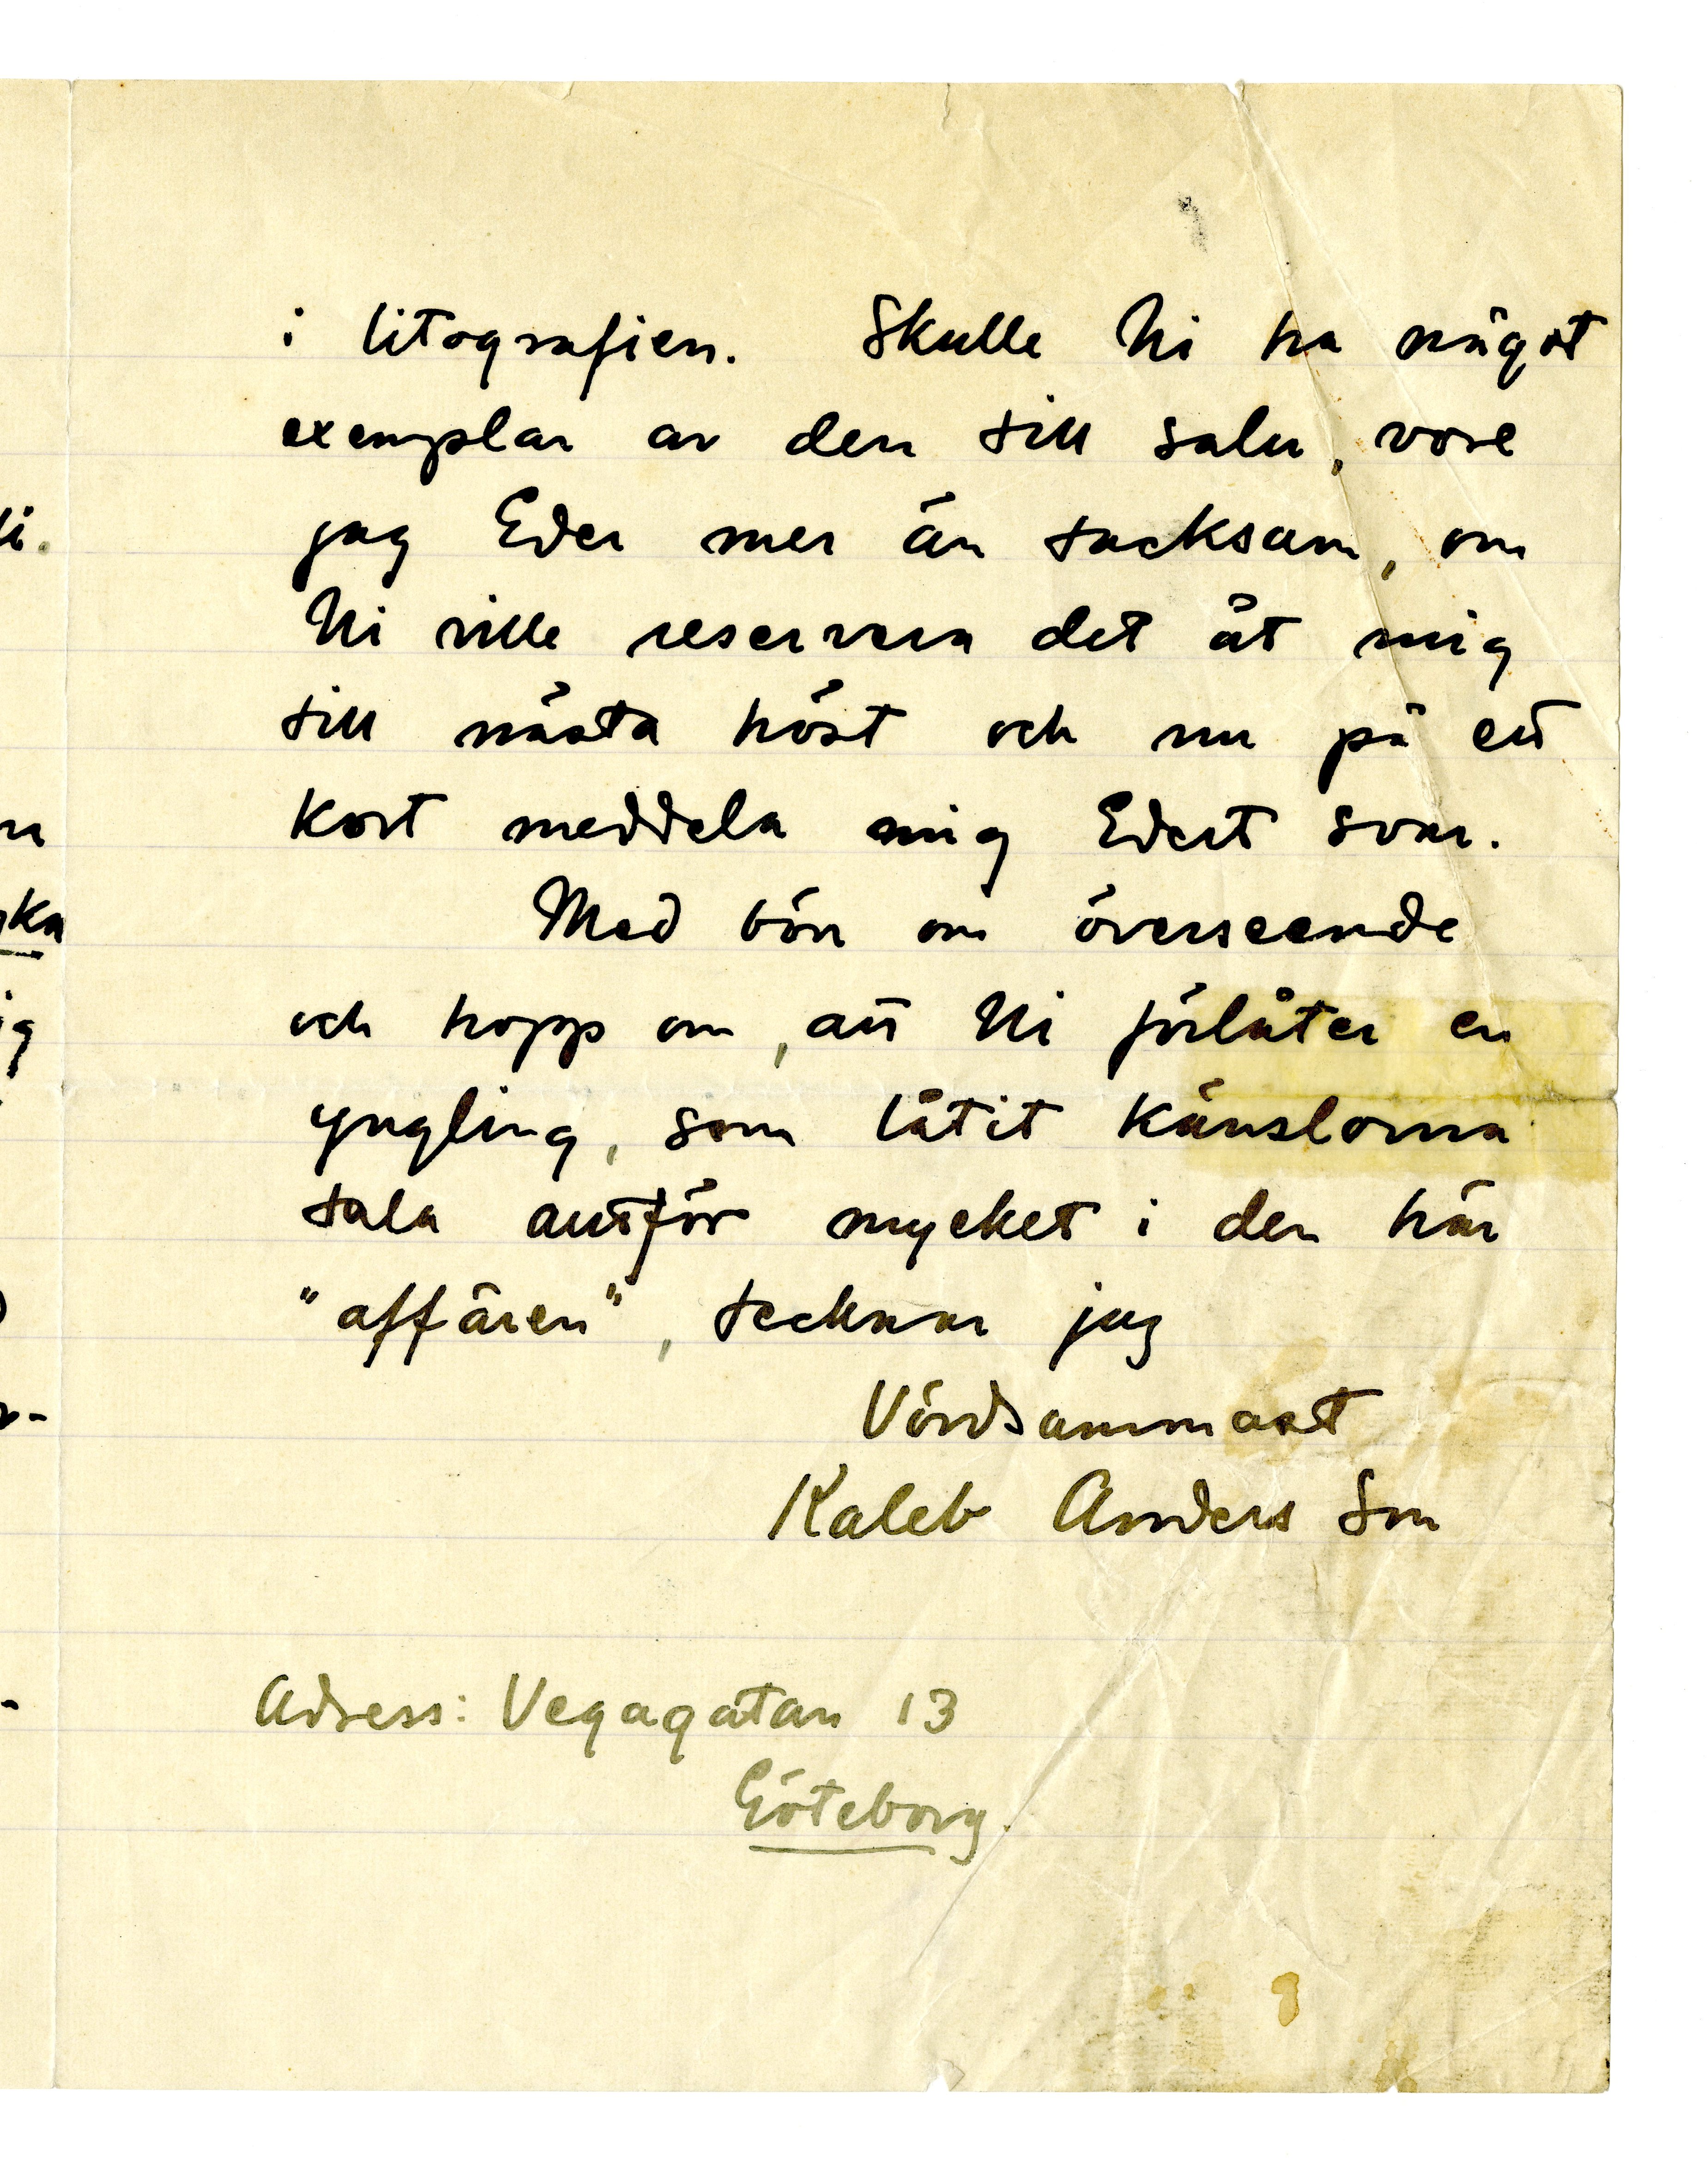 i litografien. Skulle Ni ha något
exemplar av den till salu, vore
jag Eder mer än tacksam, om
Ni ville reservera det åt mig
till nästa höst och nu på ett
kort meddela mig Edert svar.
Med bön om överseende
och hopp om, att Ni förlåter en
yngling, som låtit känslorna
tala alltför mycket i den här
"affären", tecknar jag
Vördsammast
Kaleb Anders Son
Adress: Vegagatan 13
Göteborg.